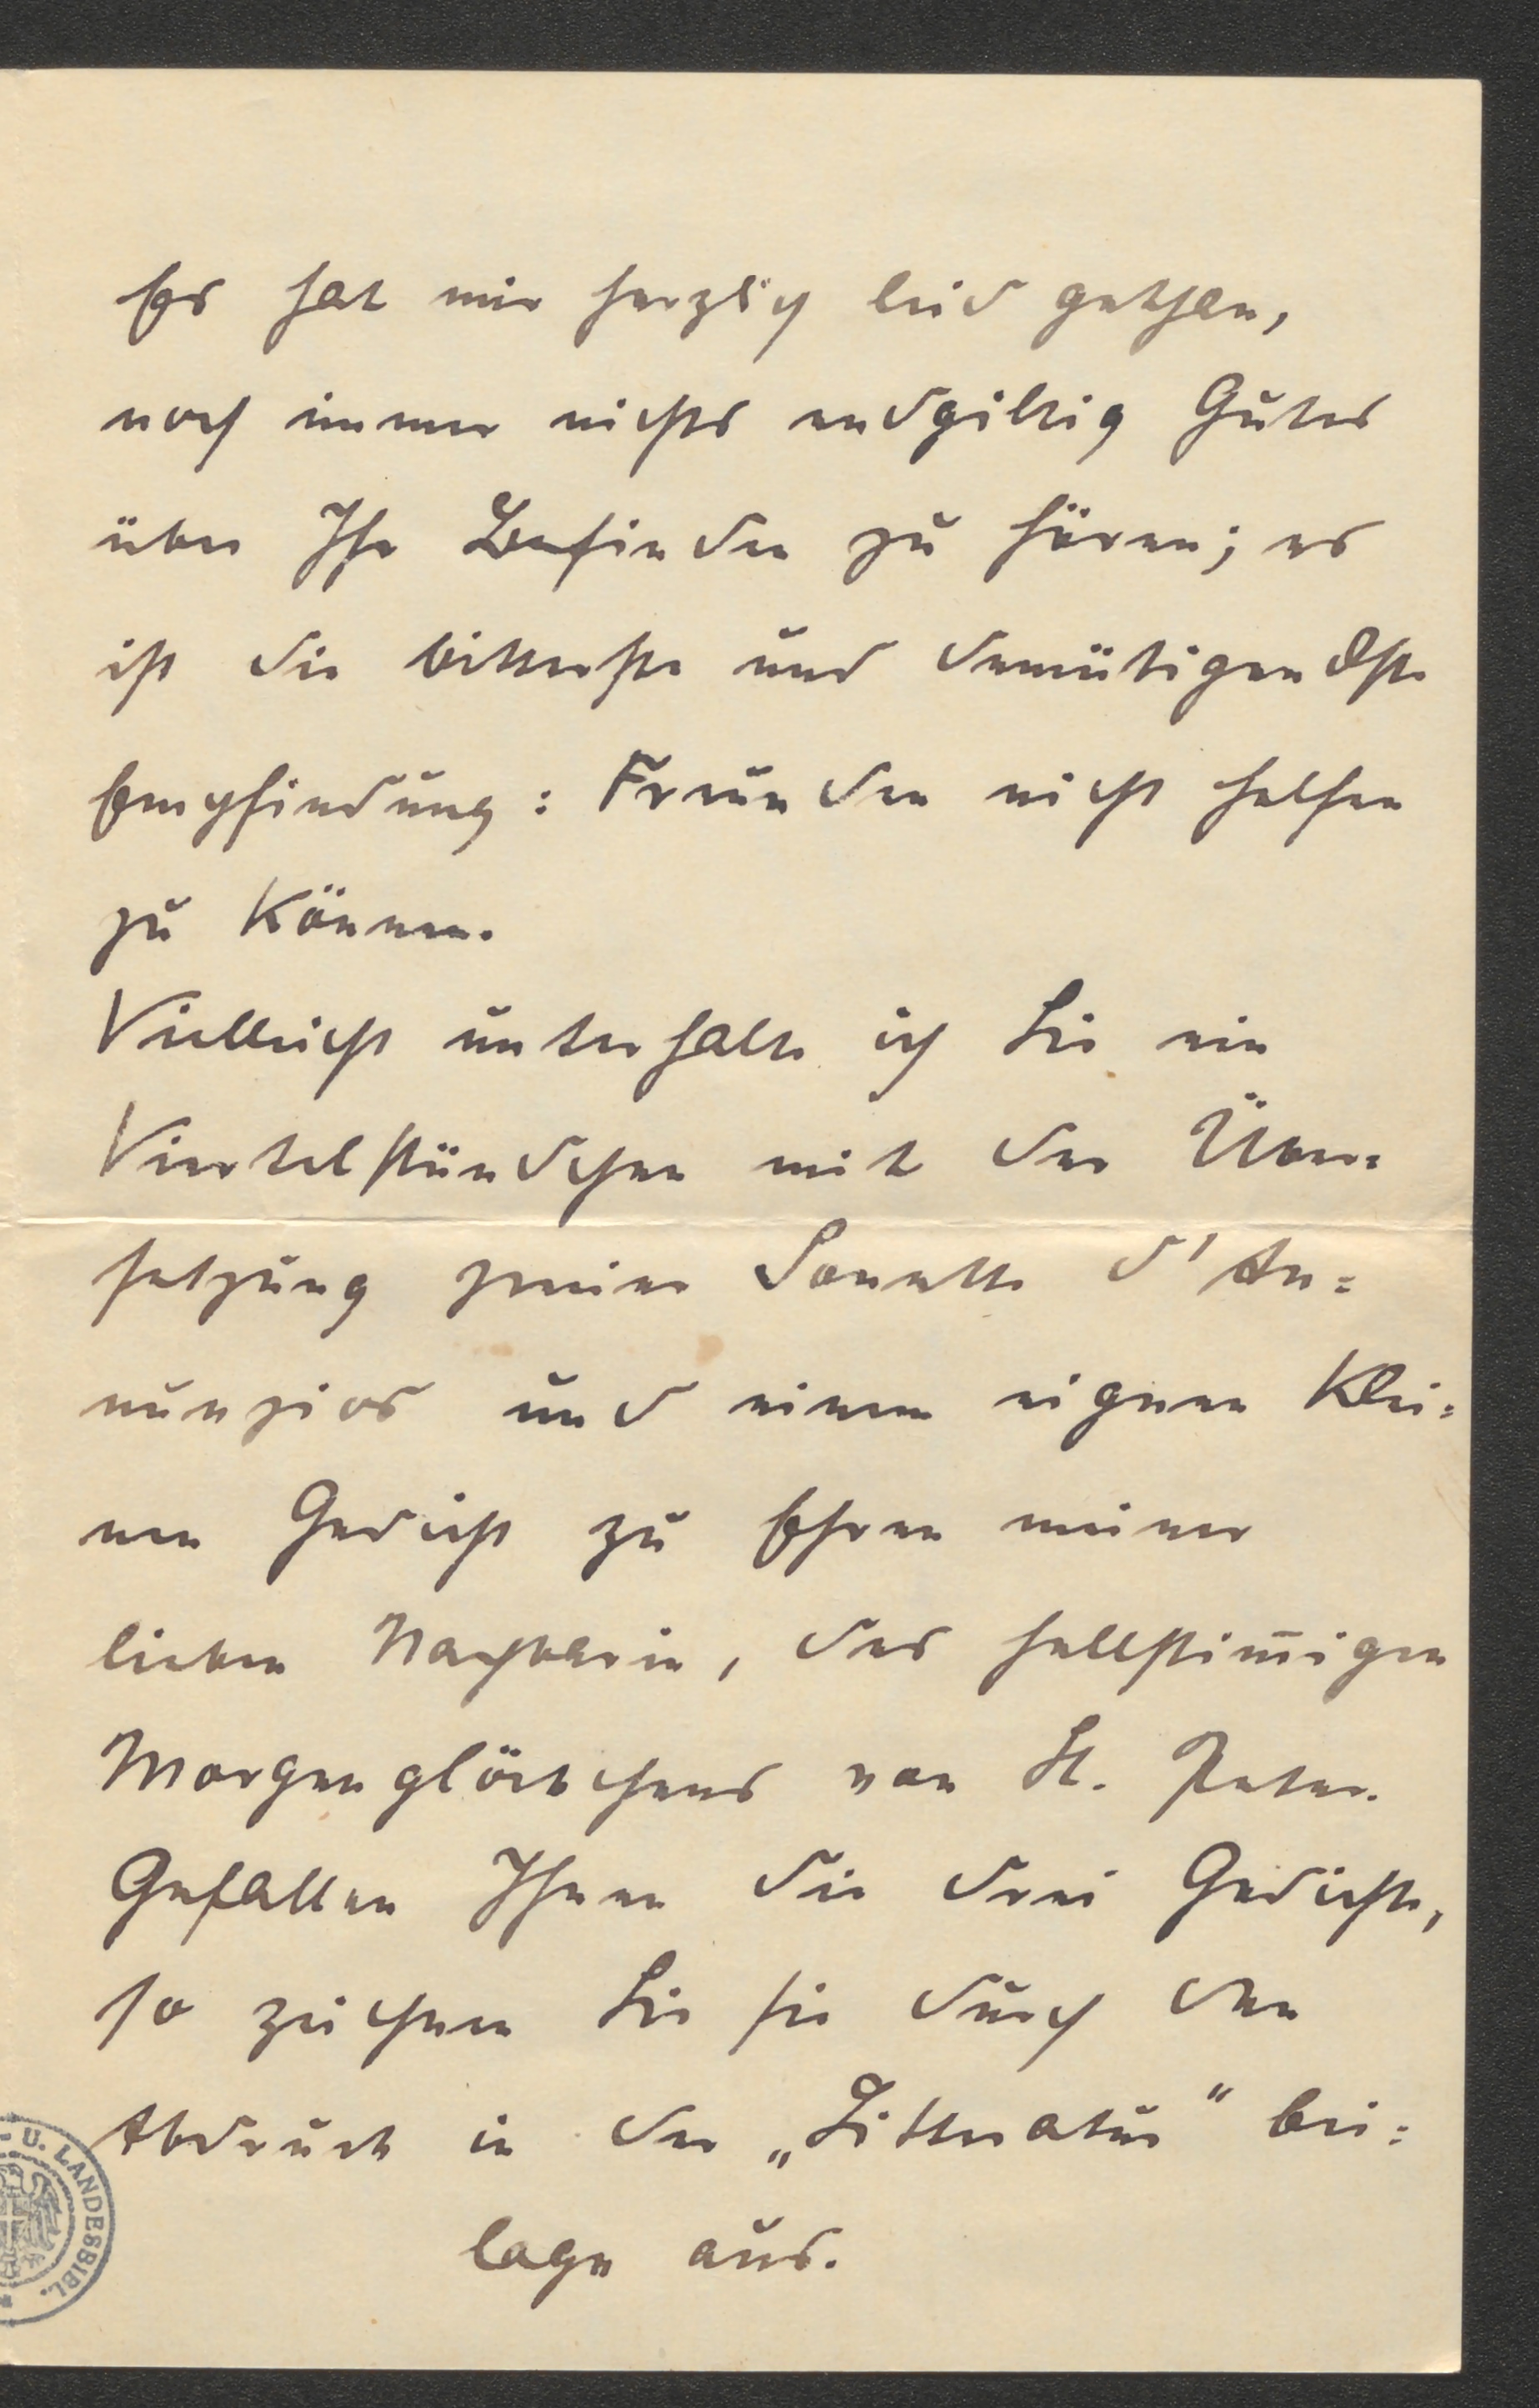 Es hat mir herzlich leid gethan,
noch immer nichts endgiltig Gutes
über Ihr Befinden zu hören; es
ist die bitterste und demütigendste
Empfindung: Freunden nicht helfen
zu können.
Vielleicht unterhalte ich Sie ein
Viertelstündchen mit der Über=
setzung zweier Sonette d'An=
nunzios und einem eignen klei=
nen Gedicht zu Ehren meiner
lieben Nachbarin, des hellstim̅igen
Morgenglöckchens von St. Peter.
Gefallen Ihnen die drei Gedichte,
so zeichnen Sie sie durch den
Abdruck in der „Litteratur" bei=
lage aus.
U. LANDESBIBL.